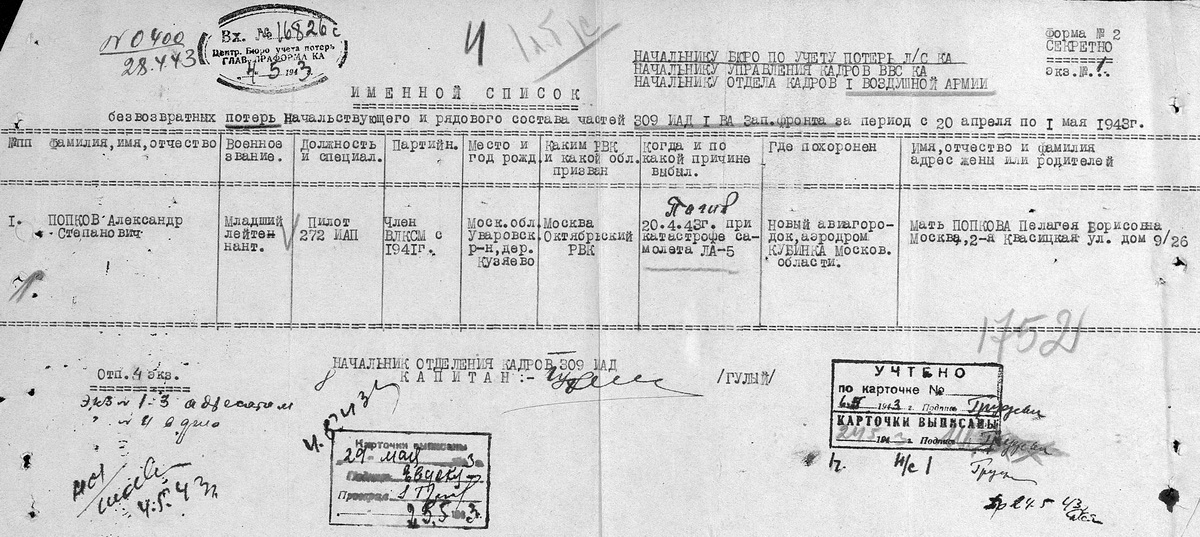 № 0400
28.4.43
Вх. № 16826с
Центр. Бюро учета потерь
4 5 1943
4
Форма № 2
СЕКРЕТНО
экз.№ 1.
НАЧАЛЬНИКУ БЮРО ПО УЧЕТУ ПОТЕРЬ Л/С КА
НАЧАЛЬНИКУ УПРАВЛЕНИЯ КАДРОВ ВВС КА
НАЧАЛЬНИКУ ОТДЕЛА КАДРОВ I ВОЗДУШНОЙ АРМИИ
ИМЕННОЙ СПИСОК
безвозвратных потерь начальствующего и рядового состава частей 309 ИАД I ВА Зап.фронта за период с 20 апреля по I мая 1943г.
№пп Фамилия,имя,отчество Военное звание. Должность и специал. Партийн. Место и год рожд. Каким РВК и какой обл. призван Когда и по какой причине выбыл. Где похоронен Имя,отчество и фамилия адрес жены или родителей
I. ПОПКОВ Александр Степанович Младший лейтенант. Пилот 272 ИАП Член ВЛКСМ с 1941г. Моск.обл. Уваровск. р-н,дер. Кузяево Москва Октябрьский РВК Погиб 20.4.43г. при катастрофе самолета ЛА-5 Новый авиагородок,аэродром КУБИНКА Москов. области. Мать ПОПКОВА Пелагея Борисовна Москва,2-я Квасицкая ул. дом 9/26
1752
НАЧАЛЬНИК ОТДЕЛЕНИЯ КАДРОВ 309 ИАД
КАПИТАН:- /ГУЛЫЙ/
Отп.4 экз.
экз № 1-3 адресатам
" № 4 в дело
4.5.43г
Карточки выписаны
29 мая 3.
Проверил
25.5 1943
УЧТЕНО
по карточке №
1943 г. Подпись
КАРТОЧКИ ВЫПИСАНЫ
194 г. Подпись
н/с 1
24.5 43